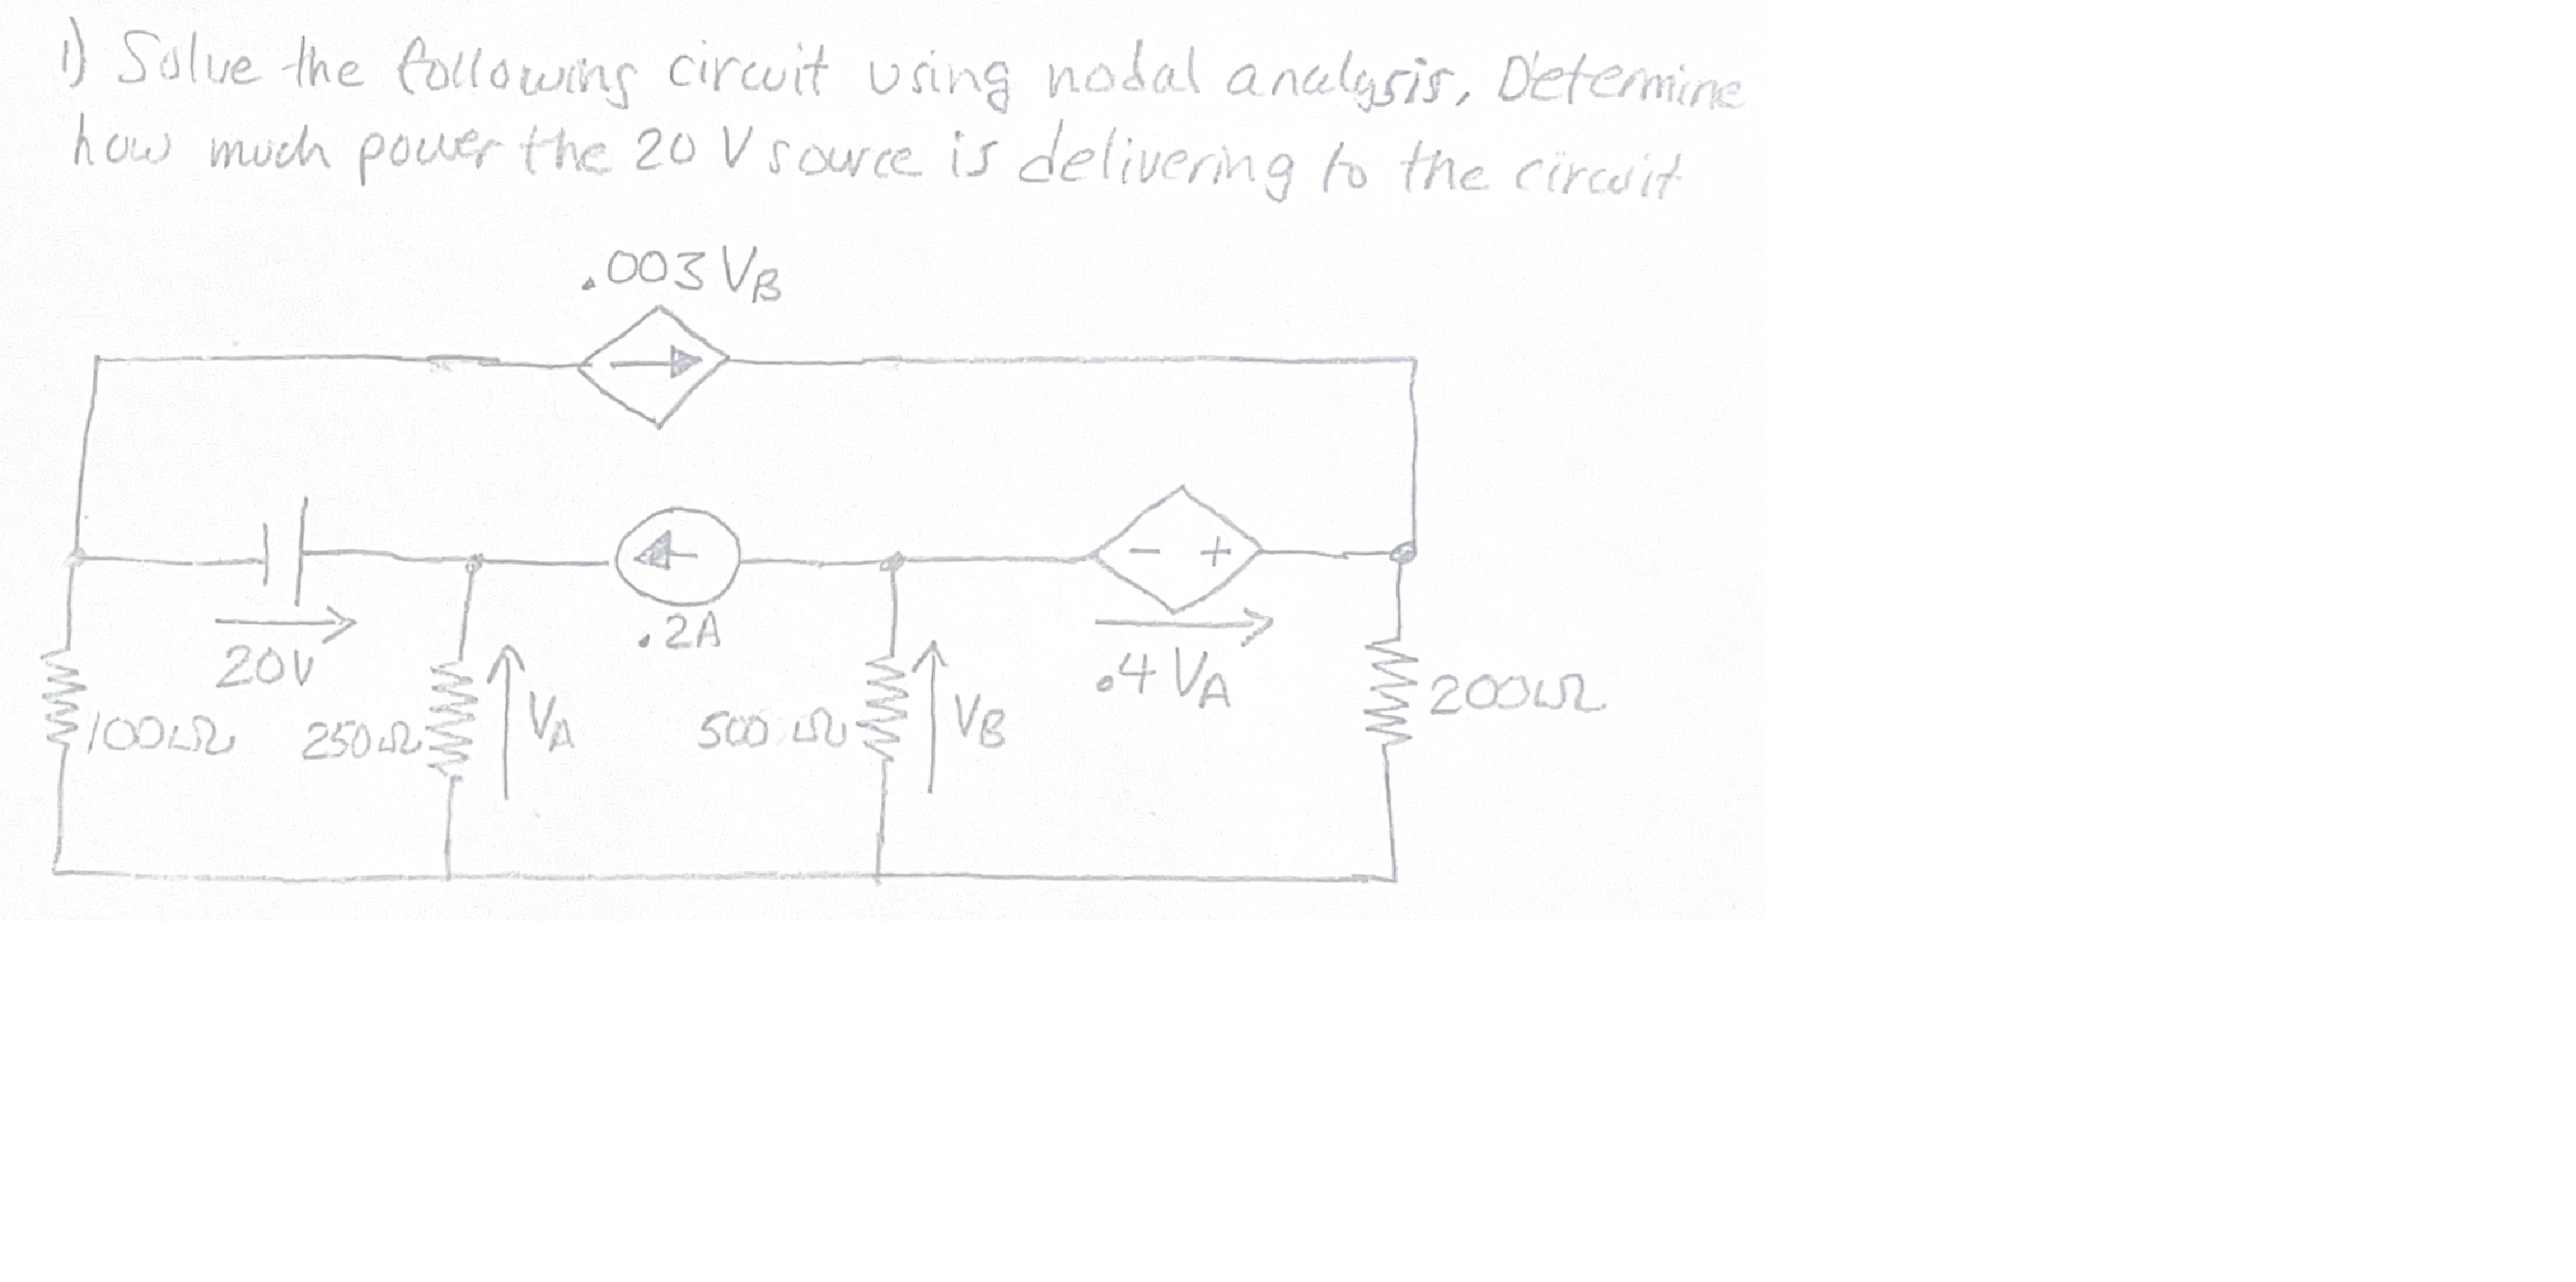 1) Solve the following circuit using nodal analysis. Determine
how much power the 20 V source is delivering to the circuit
.003 VB
- +
20V
.2A
.4 VA
100Ω
250Ω
VA
500 Ω
VB
200Ω